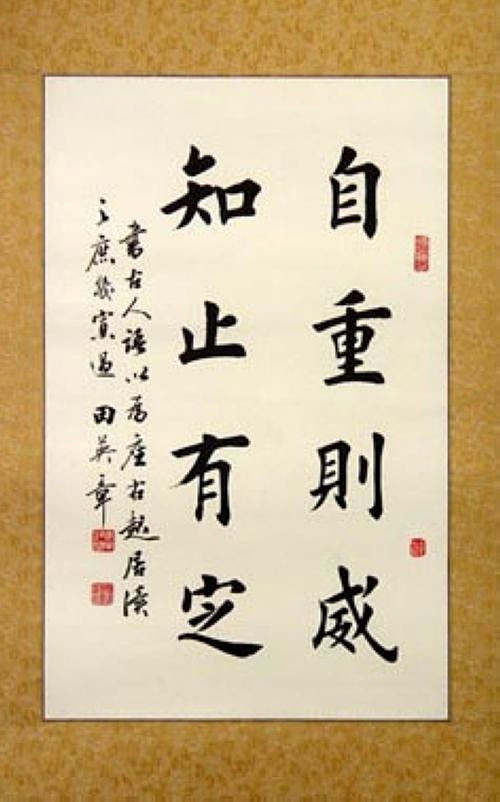 自重則威
知止有定
書古人語以為座右起居讀
之庶幾寡過 田英章